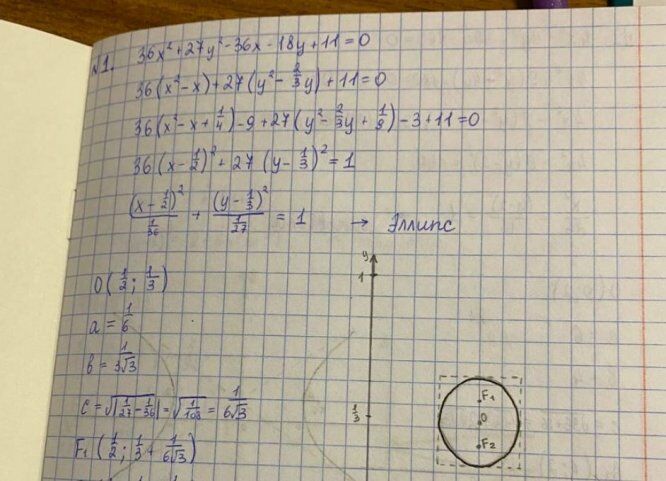 №1. 36x² + 27y² - 36x - 18y + 11 = 0
36(x² - x) + 27(y² - 2/3y) + 11 = 0
36(x² - x + 1/4) - 9 + 27(y² - 2/3y + 1/9) - 3 + 11 = 0
36(x - 1/2)² + 27(y - 1/3)² = 1
(x - 1/2)²/(1/36) + (y - 1/3)²/(1/27) = 1 → Эллипс
O(1/2; 1/3)
a = 1/6
b = 1/(3√3)
c = √|1/27 - 1/36| = √(1/108) = 1/(6√3)
F₁(1/2; 1/3 + 1/(6√3))
y
1
1/3
F₁
O
F₂